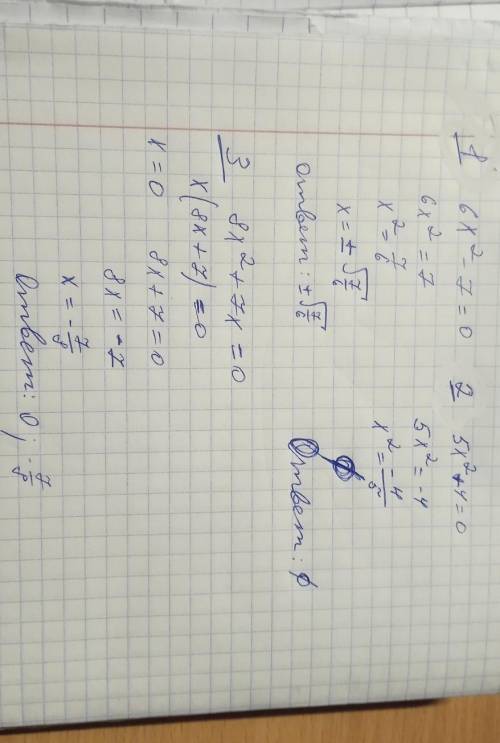 1 6x² - 7 = 0
6x² = 7
x² = 7/6
x = ± √7/6
Ответ: ± √7/6
2 5x² + 4 = 0
5x² = -4
x² = -4/5
Ответ: ∅
3 8x² + 7x = 0
x(8x + 7) = 0
x = 0 8x + 7 = 0
8x = -7
x = -7/8
Ответ: 0; -7/8